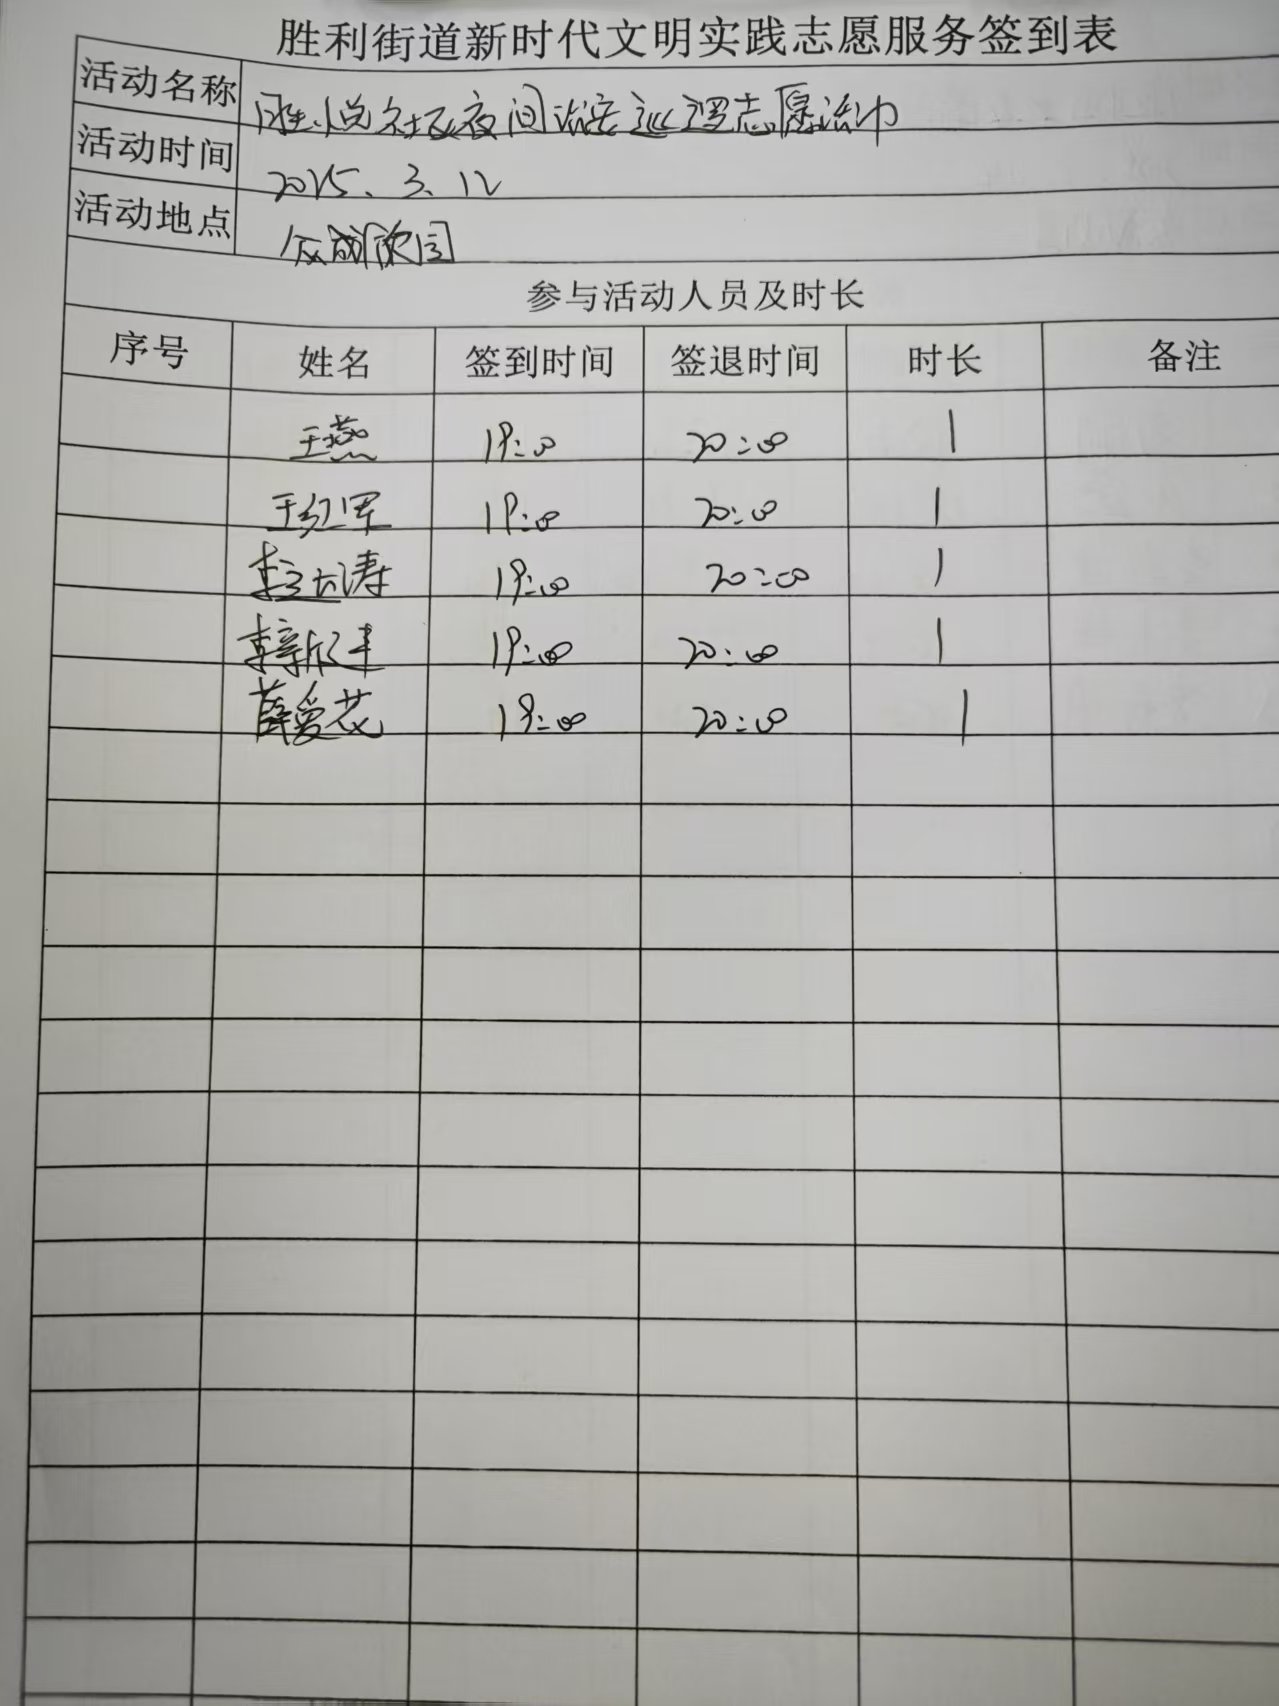 胜利街道新时代文明实践志愿服务签到表
活动名称 胜悦社区夜间治安巡逻志愿活动
活动时间 2025.3.12
活动地点
参与活动人员及时长
序号 姓名 签到时间 签退时间 时长 备注
王燕 19:00 20:00 1
王红军 19:00 20:00 1
19:00 20:00 1
19:00 20:00 1
薛爱花 19:00 20:00 1